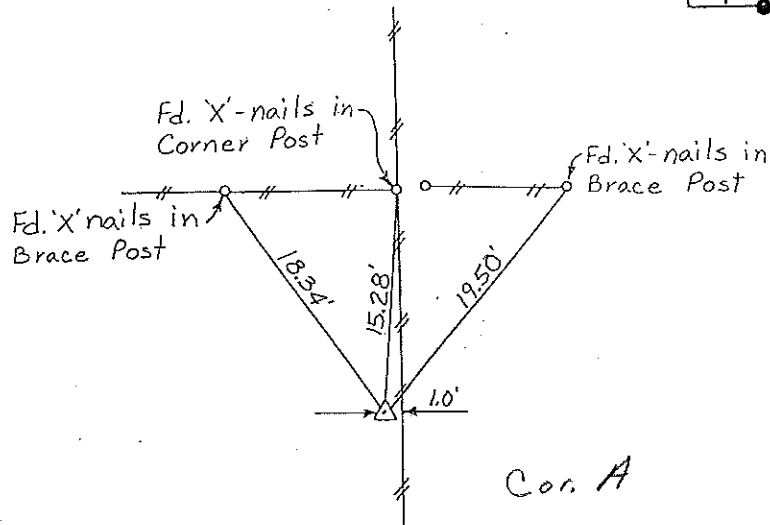 Fd. 'X'-nails in
Corner Post
Fd. 'X'-nails in
Brace Post
Fd. 'X' nails in
Brace Post
18.34'
15.28'
19.50'
1.0'
Cor. A